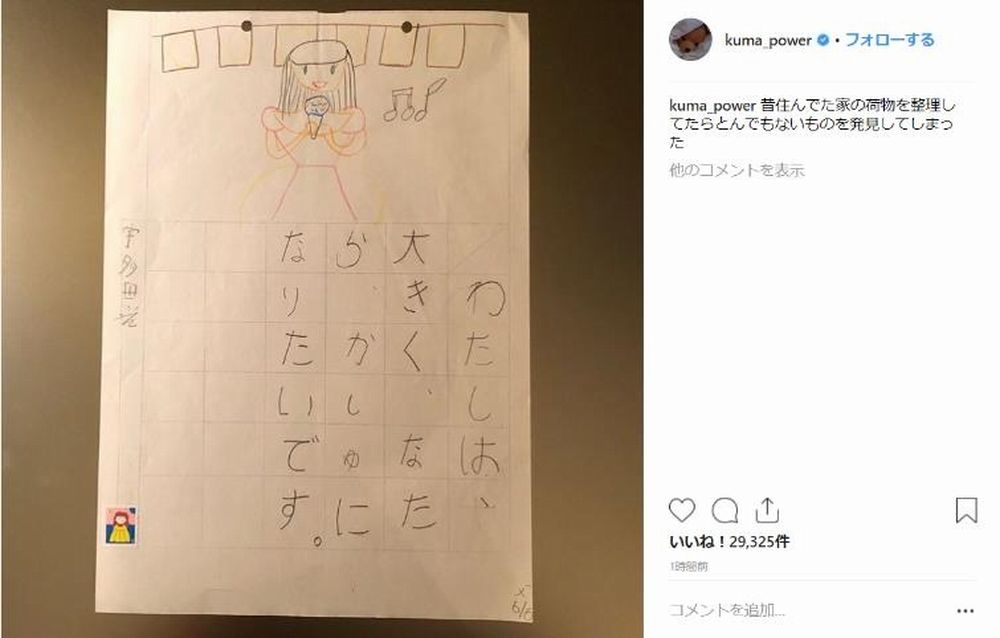 わたしは、
大きく、なた
ら、かしゅに
なりたいです。
宇多田光
kuma_power • フォローする
kuma_power 昔住んでた家の荷物を整理し
てたらとんでもないものを発見してしまっ
た
他のコメントを表示
いいね！29,325件
1時間前
コメントを追加...